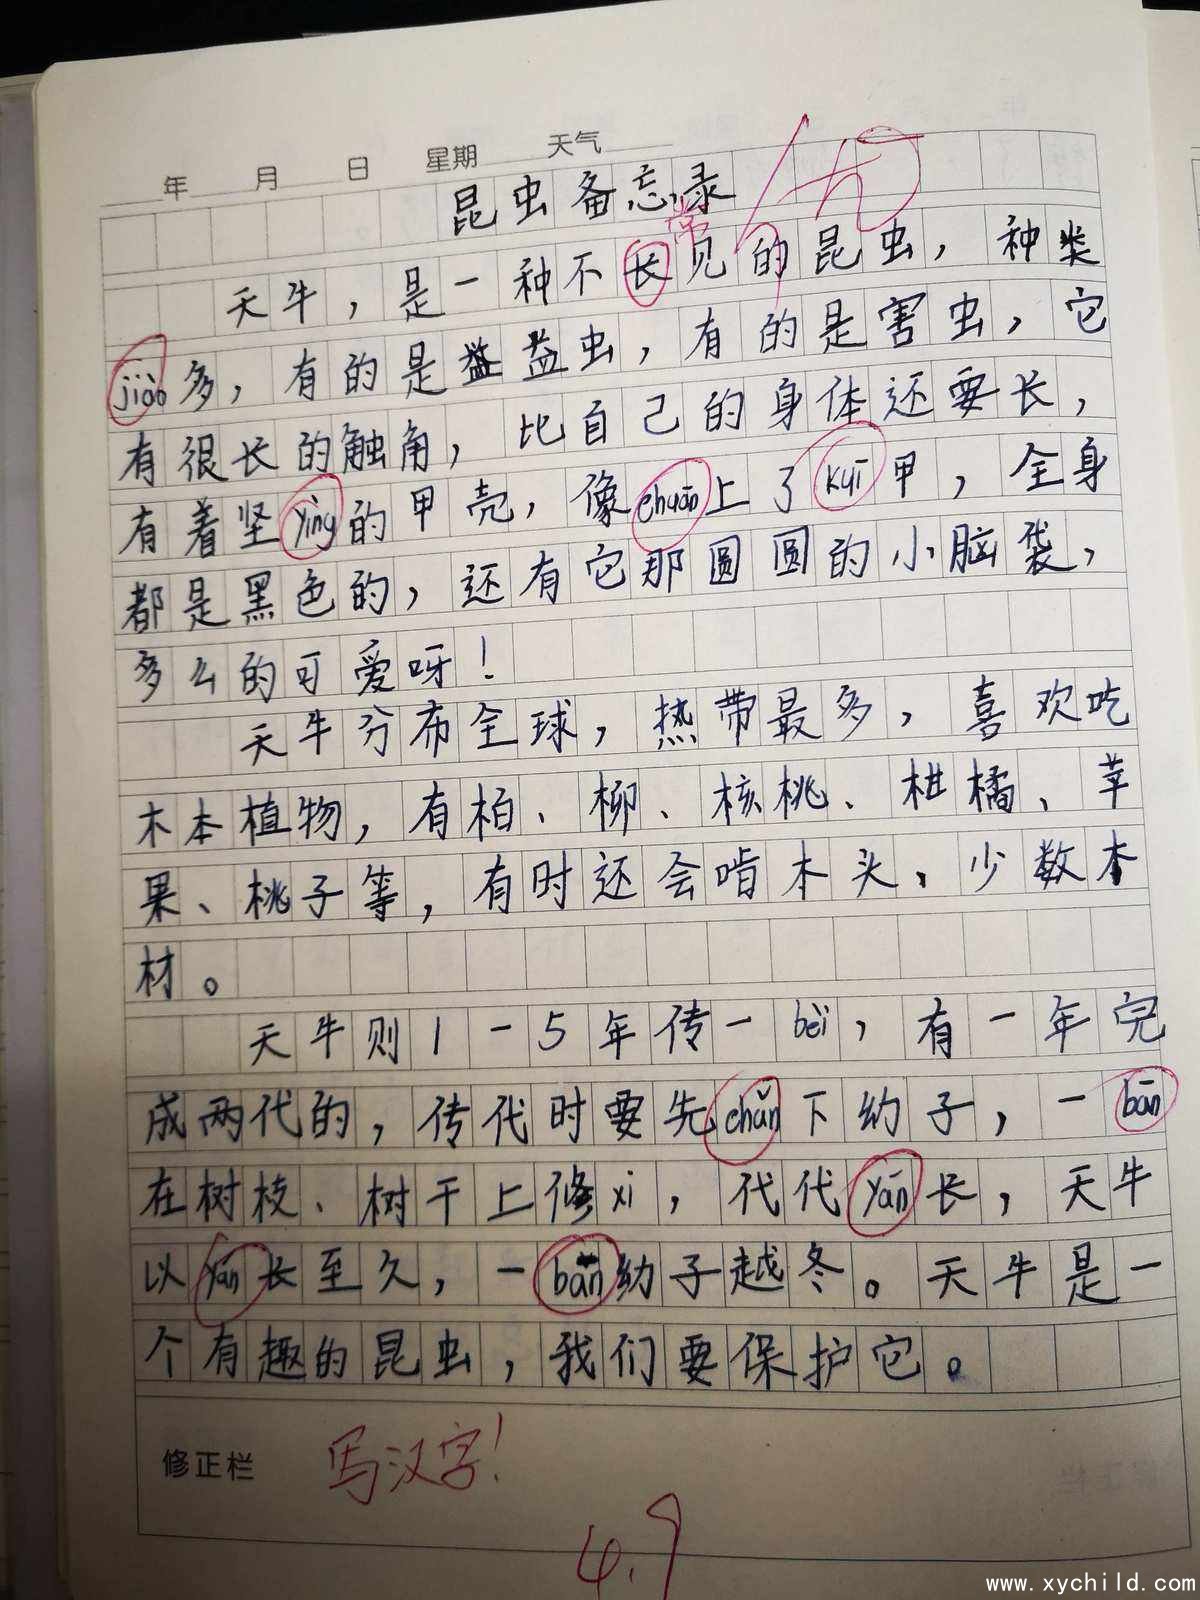 年 月 日 星期 天气
昆虫备忘录
优
常
天牛，是一种不长见的昆虫，种类
jiào多，有的是益益虫，有的是害虫，它
有很长的触角，比自己的身体还要长，
有着坚yìng的甲壳，像chuān上了kuī甲，全身
都是黑色的，还有它那圆圆的小脑袋，
多么的可爱呀！
天牛分布全球，热带最多，喜欢吃
木本植物，有柏、柳、核桃、柑橘、苹
果、桃子等，有时还会啃木头、少数木
材。
天牛则1-5年传一bèi，有一年完
成两代的，传代时要先chǎn下幼子，一bān
在树枝、树干上修xi，代代yán长，天牛
以yán长至久，一bān幼子越冬。天牛是一
个有趣的昆虫，我们要保护它。
修正栏 写汉字！
4.9
www.xychild.com